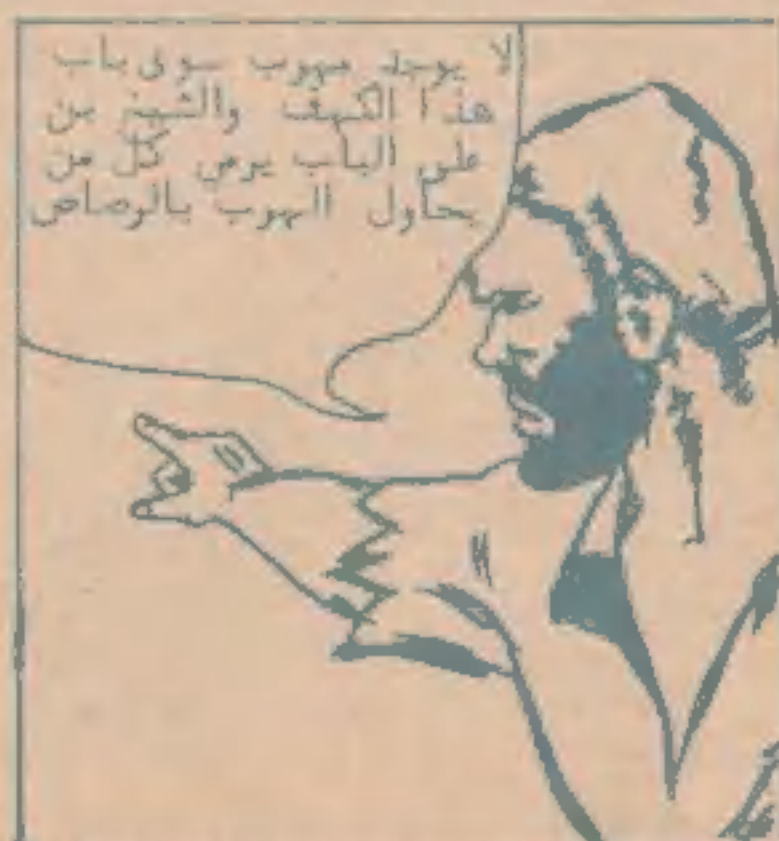 لا يوجد مهوب سوى باب
هذا الكهف والشيخ بن
على الباب يرمي كل من
يحاول الهوب بالرصاص